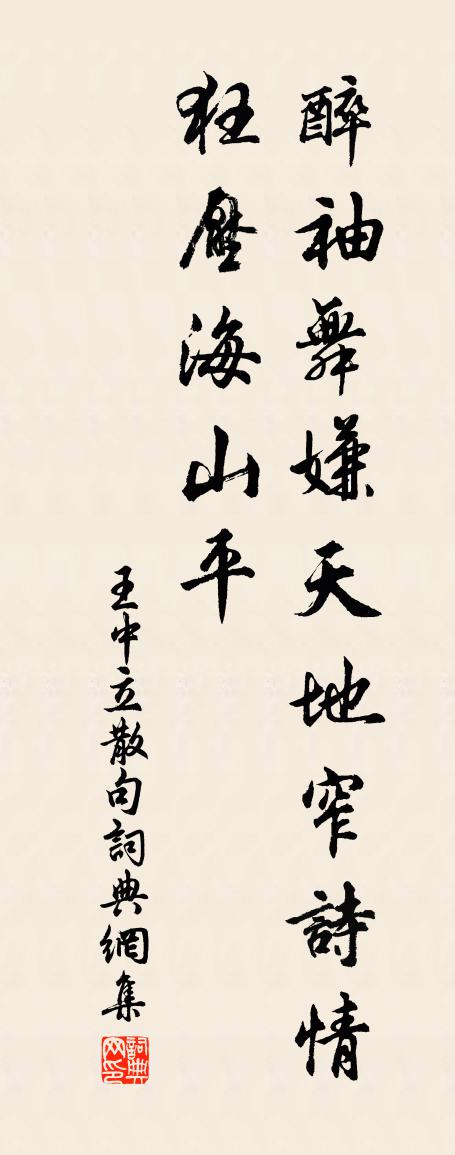 醉袖舞嫌天地窄詩情
狂壓海山平
王中立散句詞典網集
詞典网印